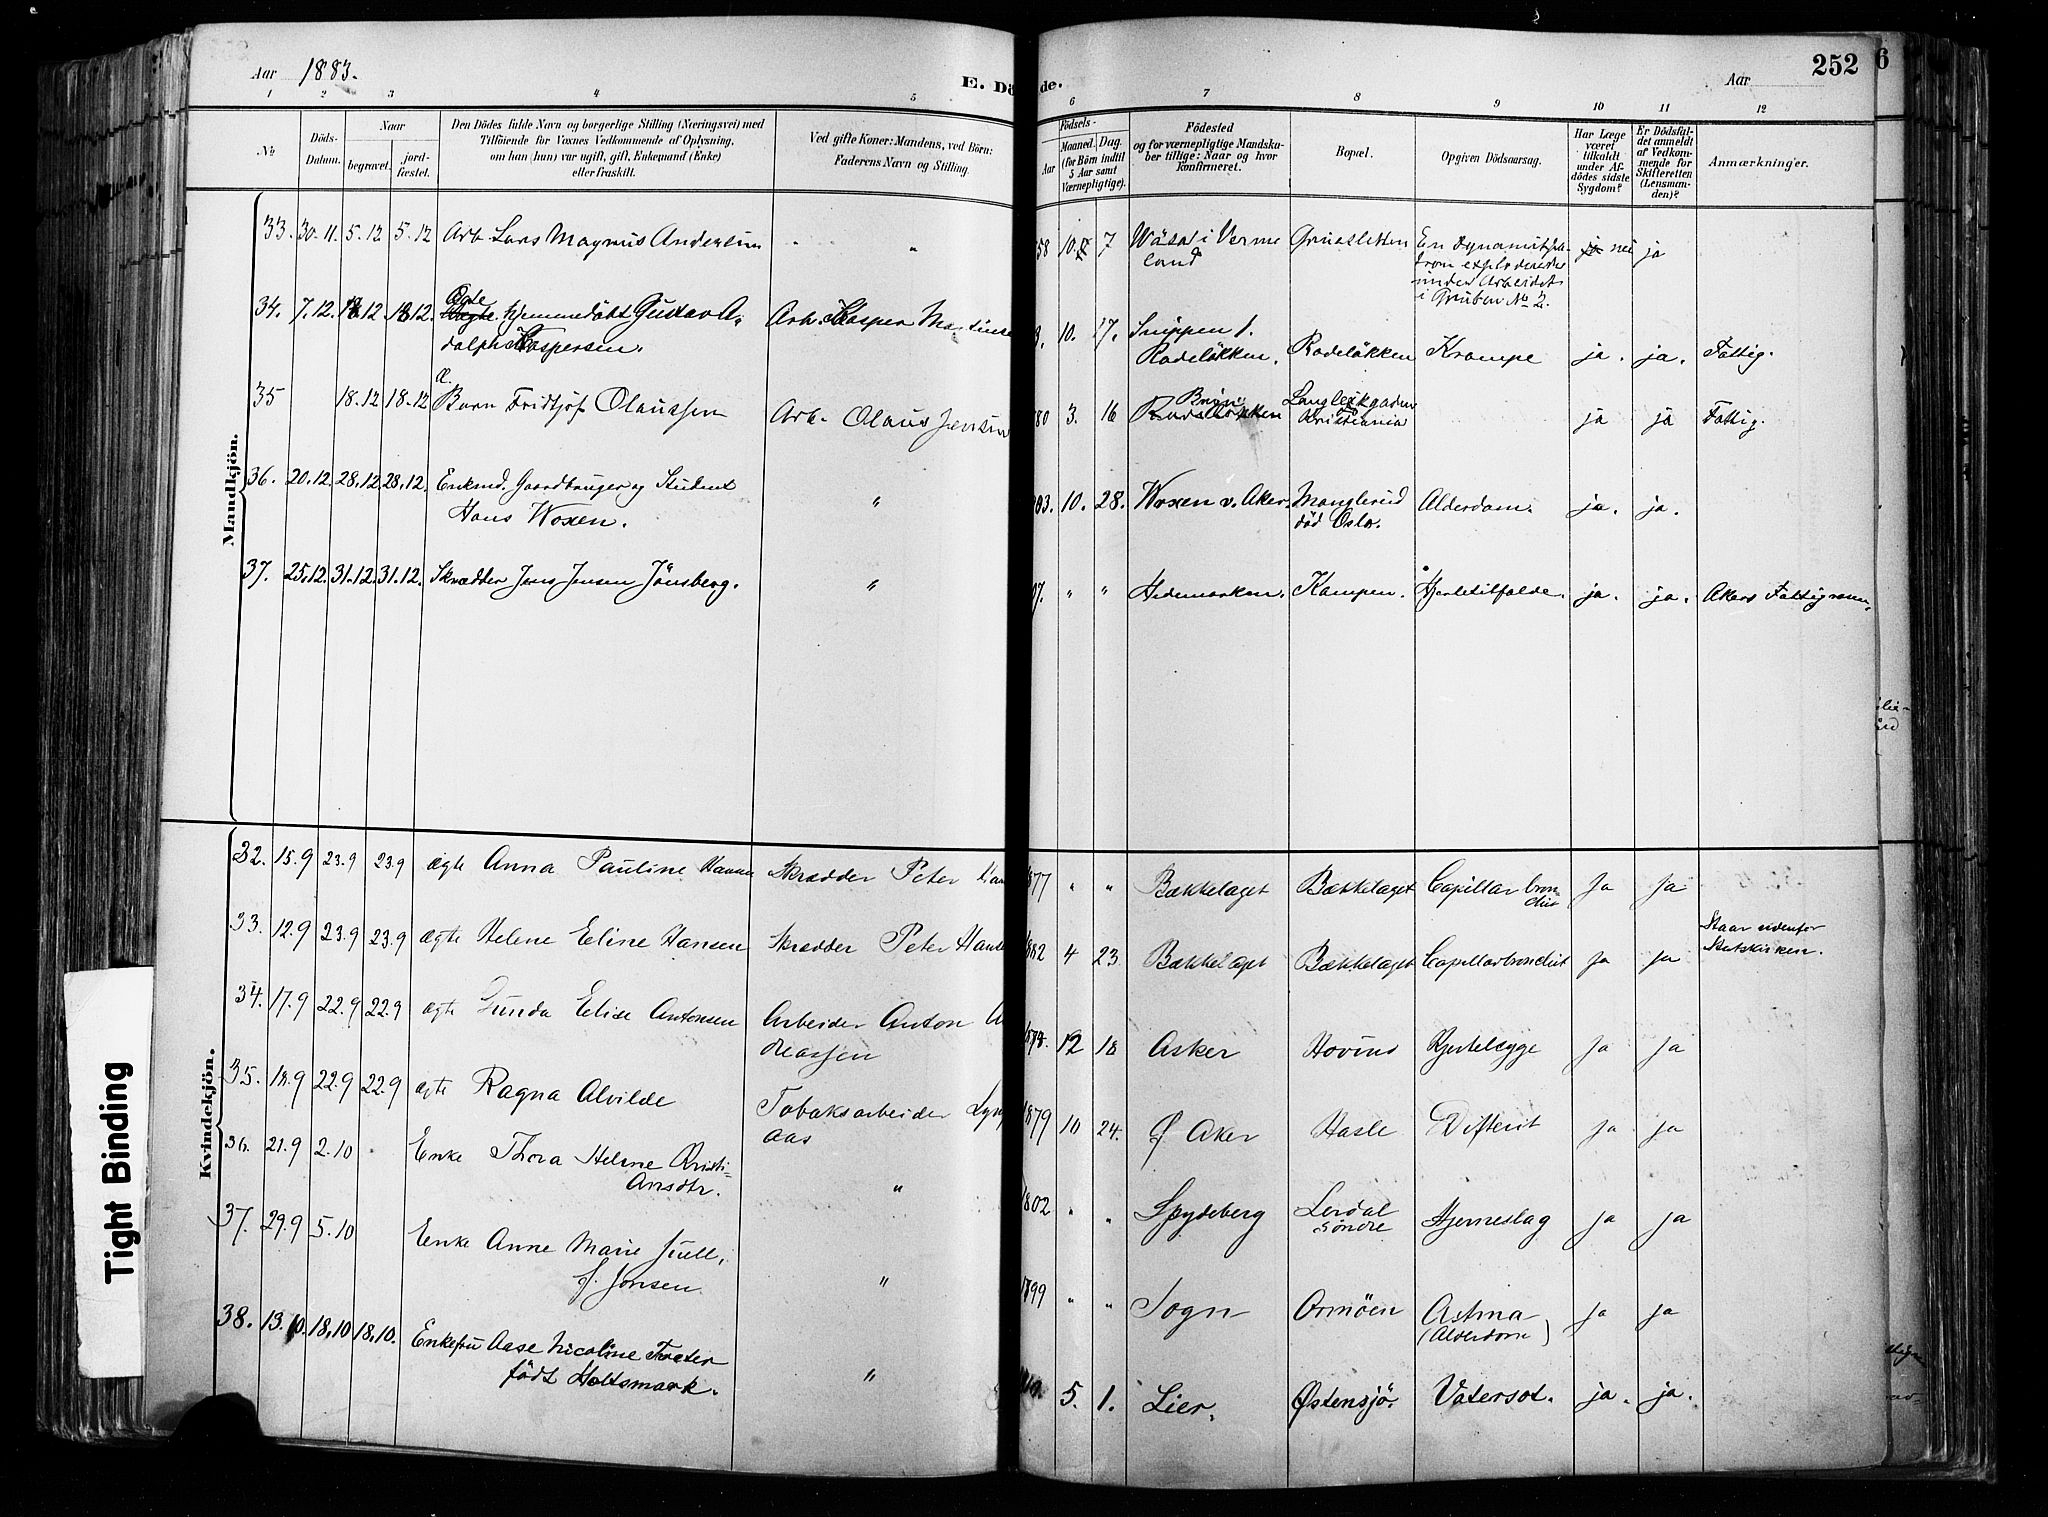 Aar 1883.
E. Dö de.
Aar
252
6
1 2 3 4 5 6 7 8 9 10 11 12
No.
Döds-Datum.
Naar
begravet.
jord-fæstet.
Den Dödes fulde Navn og borgerlige Stilling (Næringsvei) med
Tilföiende for Voxnes Vedkommende af Oplysning,
om han (hun) var ugift, gift, Enkemand (Enke)
eller fraskilt.
Ved gifte Koner: Mandens, ved Börn:
Faderens Navn og Stilling.
Födsels-
Aar
Maaned. Dag.
(for Börn indtil
5 Aar samt
Værnepligtige).
Födested
og for værnepligtige Mandska-
ber tillige: Naar og hvor
konfirmeret.
Bopæl.
Opgiven Dödsaarsag.
Har Læge
været
tilkaldt
under Af-
dödes sidste
Sygdom?
Er Dödsfal-
det anmeldt
af Vedkom-
mende for
Skifteretten
(Lensman-
den)?
Anmærkninger.
Mandkjön.
33. 30.11. 5.12 5.12 Arb. Lars Magnus Andersen " 58 10 7 Wäse i Verme
land
En Dynamitpa-
tron exploderede
under Arbeidet
i Gruben No 2.
ja nei ja
34. 7.12. 18.12 18.12. Ægte hjemmedöbt Gustav A-
dolph Kaspersen. Arb. Kasper Martinse 3. 10. 17. Snippen /.
Rodelökken. Rodelökken Krampe ja. ja. Fattig.
35 18.12 18.12 Æ.
Barn Fridtjof Olaussen Arb. Olaus Jensen 80 3. 16 Bryn
Rodelökken
Kristiania ja ja Fattig.
36. 20.12. 28.12. 28.12. Enkmd. Gaardbruger og Student
Hans Woxen. " 03. 10. 28. Woxen v. Aker. Manglerud
död Oslo. Alderdom. ja. ja.
37. 25.12. 31.12. 31.12. Skrædder Jens Jensen Jönsberg. " 07. " " Hedemarken. Kampen. Hjertetilfælde. ja. ja. Akers Fattigvæsen.
Kvindekjön.
32. 15.9 23.9 23.9 ægte Anna Pauline Hanse Skrædder Peter Han 1877 " " Bækkelaget Bækkelaget Capillar bron
chit Ja Ja
33. 12.9 23.9 23.9 ægte Helene Eline Hansen Skrædder Peter Hanse 1882 4 23 Bækkelaget Bækkelaget Capillarbronchit Ja Ja Staar udenfor
Statskirken.
34. 17.9 22.9 22.9 ægte Gunda Elise Antonsen Arbeider Anton A
dreassen 12 18 Asker Hovind Hjertelægge Ja Ja
35. 18.9 22.9 22.9 ægte Ragna Alvilde Tobaksarbeider
Aas 1879 10 24. Ø Aker Hasle Difterit Ja Ja
36. 21.9 2.10 Enke Thora Helene Kristi-
Ansdtr. " 1802 " " Spydeberg Lerdal
söndre Hjerneslag Ja Ja
37. 29.9 5.10 Enke Anne Marie Juell,
f. Jonsen " 1799 " " Sogn Ormöen Astma
(Alderdom) Ja Ja
38. 13.10. 18.10 18.10. Enkefru Aase Nicoline Træter
födt Holtsmark. " 5. 1. Lier. Østensjö. Vatersot. ja. ja.
Tight Binding